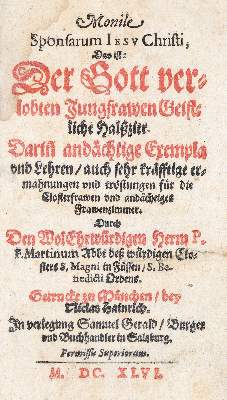 Monile
Sponsarum IESV Christi,
Das ist:
Der Gott ver-
lobten Jungfrawen Geist-
liche Halßzier.
Darin andächtige Exempla
vnd Lehren / auch sehr kräfftige er-
mahnungen vnd tröstungen für die
Closterfrawen vnd andächtiges
Frawenzimmer.
Durch
Den WolEhrwürdigen Herrn P.
F. Martinum Abbt deß würdigen Clo-
sters S. Magni in Füssen / S. Be-
nedicti Ordens.
Getruckt zu München / bey
Niclas Hainrich.
In verlegung Samuel Gerald / Burger
vnd Buchhandler in Saltzburg.
Permissu Superiorum.
M. DC. XLVI.